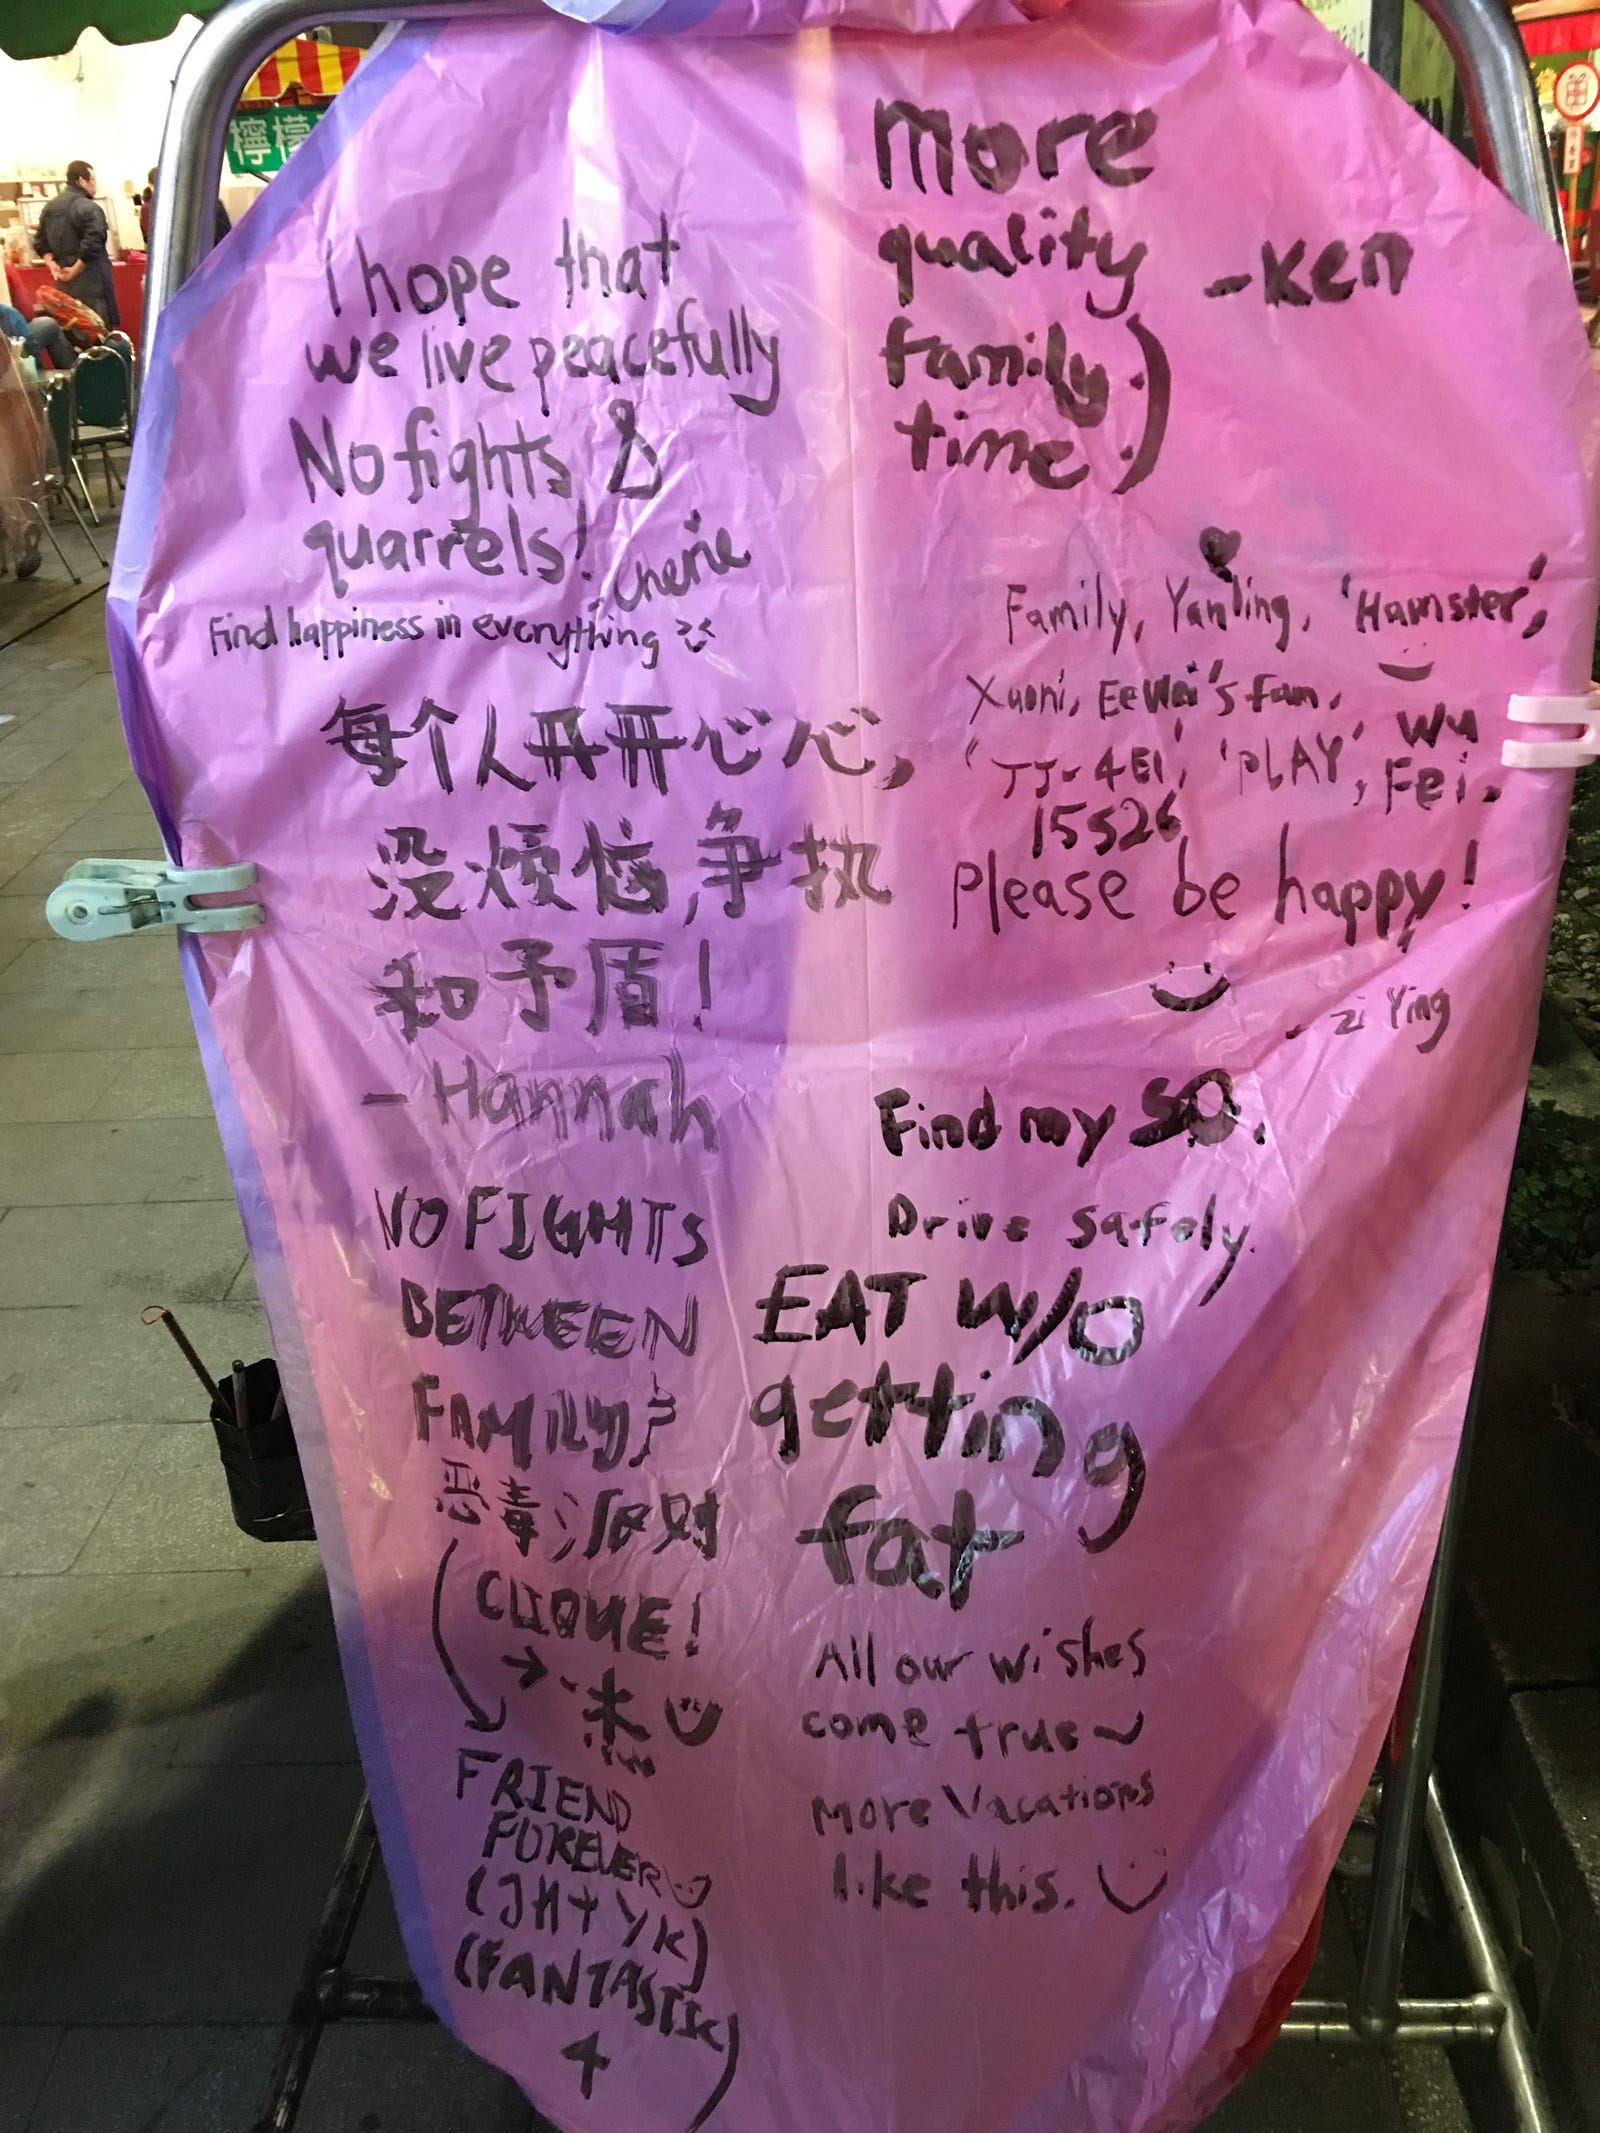 檸檬
I hope that
we live peacefully
No fights &
quarrels!
- Cherie
Find happiness in everything
每个人开开心心,
没烦恼,争执
和矛盾!
- Hannah
NO FIGHTS
BETWEEN
FAMILY &
恶毒派则
CLIQUE!
FRIEND
FOREVER
(JH+YK)
(FANTASTIC
4
more
quality
family
time :)
- Ken
Family, Yanling, 'Hamster',
Xuoni, EeWei's fam,
'JJ-4E1', 'PLAY', Wu
Fei,
15S26
Please be happy!
- Zi Ying
Find my SO.
Drive safely.
EAT W/O
getting
fat
All our wishes
come true~
More Vacations
like this.